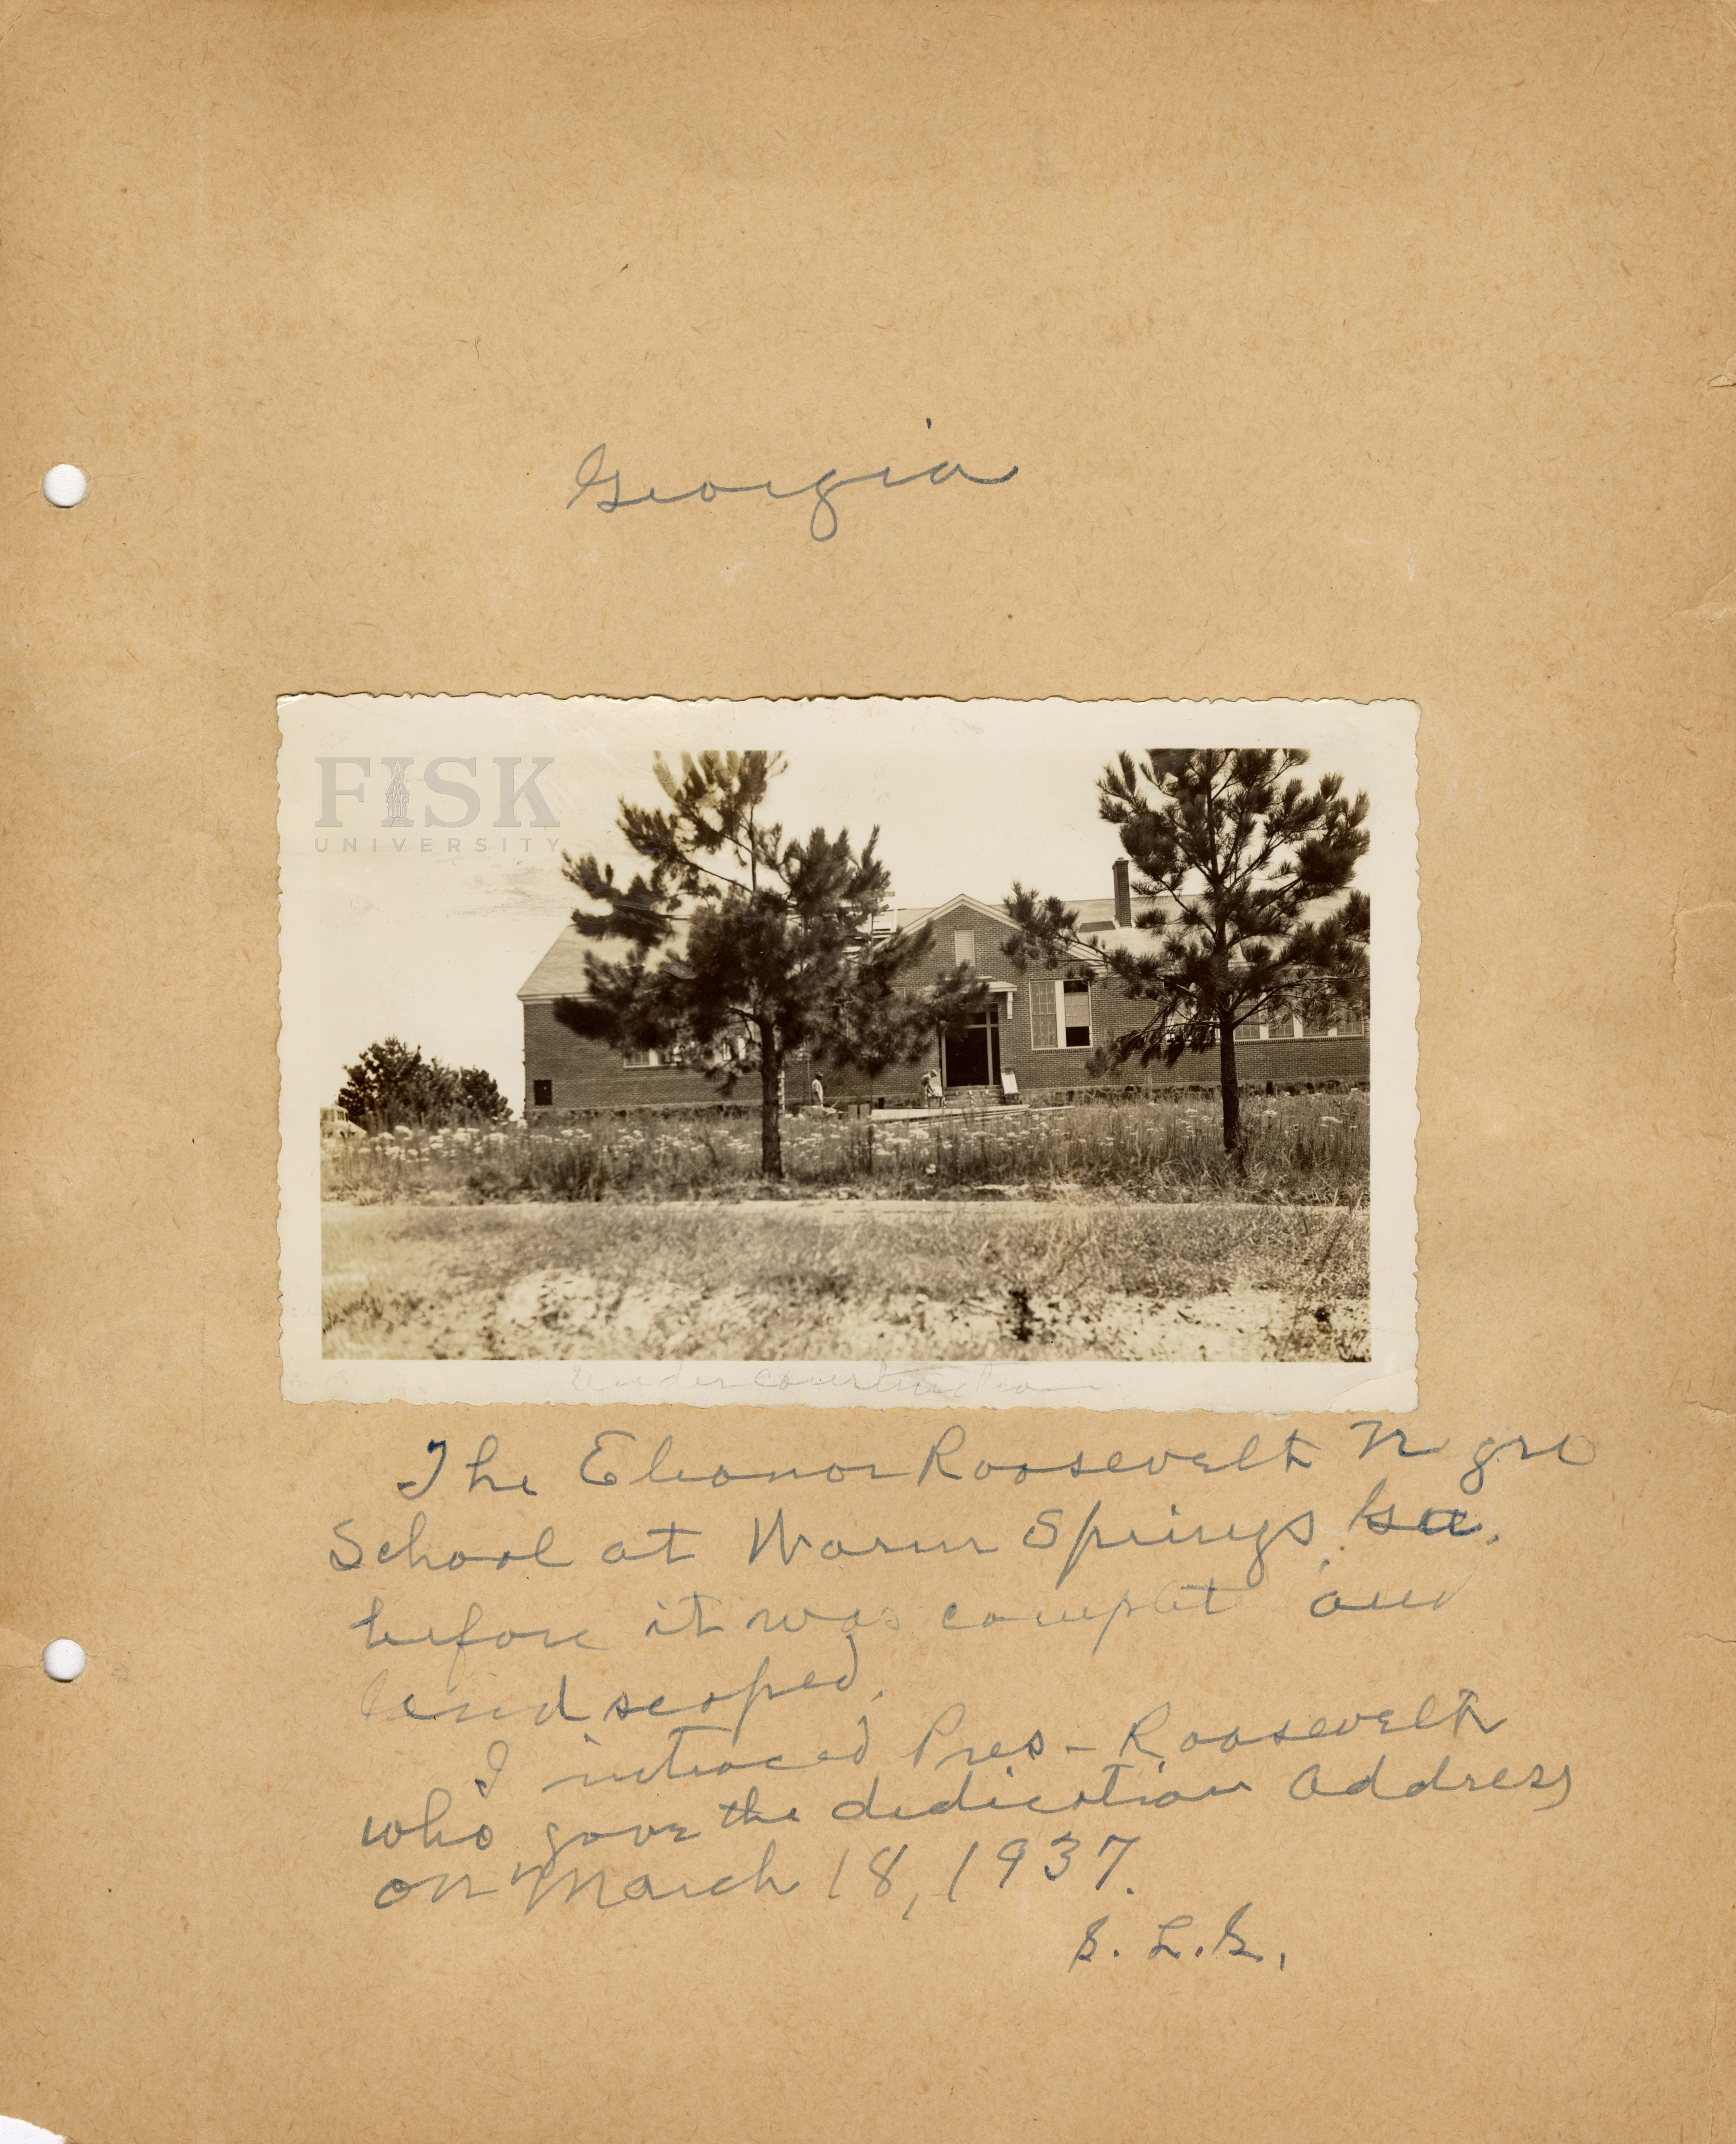 Georgia
FISK
UNIVERSITY
Under construction
The Eleanor Roosevelt Negro
School at Warm Springs, Ga.
before it was complet and
landscaped.
I introced Pres - Roosevelt
who gave the dedication address
on March 18, 1937.
S. L. S.